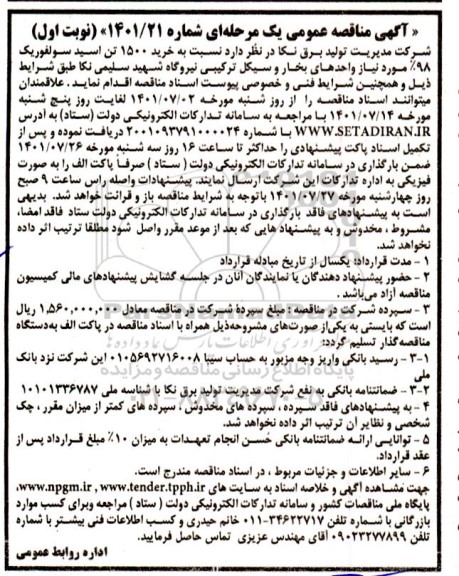 « آگهی مناقصه عمومی یک مرحله‌ای شماره ۱۴۰۱/۲۱» (نوبت اول)
شرکت مدیریت تولید برق نکا در نظر دارد نسبت به خرید ۱۵۰۰ تن اسید سولفوریک
۹۸٪ مورد نیاز واحدهای بخار و سیکل ترکیبی نیروگاه شهید سلیمی نکا طبق شرایط
ذیل و همچنین شرایط فنی و خصوصی پیوست اسناد مناقصه اقدام نماید . علاقمندان
میتوانند اسناد مناقصه را از روز شنبه مورخه ۱۴۰۱/۰۷/۰۲ لغایت روز پنج شنبه
مورخه ۱۴۰۱/۰۷/۱۴ با مراجعه به سامانه تدارکات الکترونیکی دولت (ستاد) به آدرس
WWW.SETADIRAN.IR با شماره ۲۰۰۱۰۹۳۷۹۱۰۰۰۰۲۴ دریافت نموده و پس از
تکمیل اسناد پاکت پیشنهادی را حداکثر تا ساعت ۱۶ روز سه شنبه مورخه ۱۴۰۱/۰۷/۲۶
ضمن بارگذاری در سامانه تدارکات الکترونیکی دولت ( ستاد ) صرفاً پاکت الف را به صورت
فیزیکی به اداره تدارکات این شرکت ارسال نمایند. پیشنهادات واصله راس ساعت ۹ صبح
روز چهارشنبه مورخه ۱۴۰۱/۰۷/۲۷ باتوجه به شرایط مناقصه باز و قرائت خواهد شد. بدیهی
است به پیشنهادهای فاقد بارگذاری در سامانه تدارکات الکترونیکی دولت ستاد فاقد امضا،
مشروط ، مخدوش و به پیشنهاد هایی که بعد از موعد مقرر واصل شود مطلقا ترتیب اثر داده
نخواهد شد.
۱ - مدت قرارداد: یکسال از تاریخ مبادله قرارداد
۲ - حضور پیشنهاد دهندگان یا نمایندگان آنان در جلسه گشایش پیشنهادهای مالی کمیسیون
مناقصه آزاد می‌باشد .
۳ - سپرده شرکت در مناقصه : مبلغ سپرده شرکت در مناقصه معادل ۱,۵۶۰,۰۰۰,۰۰۰ ریال
است که بایستی به یکی از صورت‌های مشروحه‌ذیل همراه با اسناد مناقصه در پاکت الف به‌دستگاه
مناقصه‌گذار تسلیم گردد:
۳-۱ - رسید بانکی واریز وجه مزبور به حساب سیبا ۰۱۰۵۶۹۲۷۱۶۰۰۸ این شرکت نزد بانک
ملی
۳-۲ - ضمانتنامه بانکی به نفع شرکت مدیریت تولید برق نکا با شناسه ملی ۱۰۱۰۱۳۳۶۷۸۷
۴ - به پیشنهادهای فاقد سپرده ، سپرده های مخدوش ، سپرده های کمتر از میزان مقرر ، چک
شخصی و نظایر آن ترتیب اثر داده نخواهد شد.
۵ - توانایی ارائه ضمانتنامه بانکی حُسن انجام تعهدات به میزان ۱۰٪ مبلغ قرارداد پس از
عقد قرارداد.
۶ - سایر اطلاعات و جزئیات مربوط ، در اسناد مناقصه مندرج است.
جهت مشاهده آگهی و خلاصه اسناد به سایت های www.npgm.ir , www.tender.tpph.ir،
پایگاه ملی مناقصات کشور و سامانه تدارکات الکترونیکی دولت ( ستاد ) مراجعه وبرای کسب موارد
بازرگانی با شماره تلفن ۳۴۶۲۲۷۱۷-۰۱۱ خانم حیدری و کسب اطلاعات فنی بیشتر با شماره
تلفن ۰۹۰۲۳۲۷۷۸۹۹ آقای مهندس عزیزی تماس حاصل فرمایید.
اداره روابط عمومی